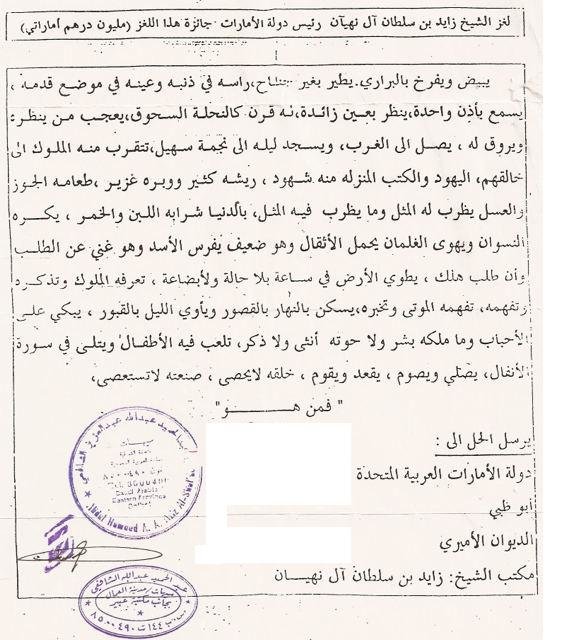 لغز الشيخ زايد بن سلطان آل نهيآن رئيس دولة الأمارات جائزة هذا اللغز (مليون درهم أماراتي)
يبيض ويفرخ بالبراري. يطير بغير جناح،راسه في ذنبه وعينه في موضع قدمه ،
يسمع بأذن واحدة،ينظر بعين زائدة،له قرن كالنحلة السحوق،يعجب من ينظره
ويروق له ، يصل الى الغرب، ويسجد ليله الى نجمة سهيل،تتقرب منه الملوك الى
خالقهم، اليهود والكتب المنزله منه شهود ، ريشه كثير ووبره غزير ،طعامه الجوز
والعسل يظرب له المثل وما يظرب فيه المثل، بالدنيا شرابه اللبن والخمر ، يكره
النسوان ويهوى الغلمان يحمل الأثقال وهو ضعيف يفرس الأسد وهو غني عن الطلب
وأن طلب هلك ، يطوي الأرض في ساعة بلا حالة ولأبضاعة ، تعرفه الملوك وتذكره
وتفهمه، تفهمه الموتى وتخبره،يسكن بالنهار بالقصور ويأوي الليل بالقبور ، يبكي على
الأحباب وما ملكه بشر ولا حوته أنثى ولا ذكر، تلعب فيه الأطفال ويتلى في سورة
الأنفال، يصلي ويصوم ، يقعد ويقوم ، خلقه لايحصى ، صنعته لاتستعصى،
" فمن هـــو "
يرسل الحل الى :
دولة الأمارات العربية المتحدة
أبو ظبي
الديوان الأميري
مكتب الشيخ: زايد بن سلطان آل نهيـان
Saudi Arabia
Eastern Province
عبد الحميد عبدالله الشافعي